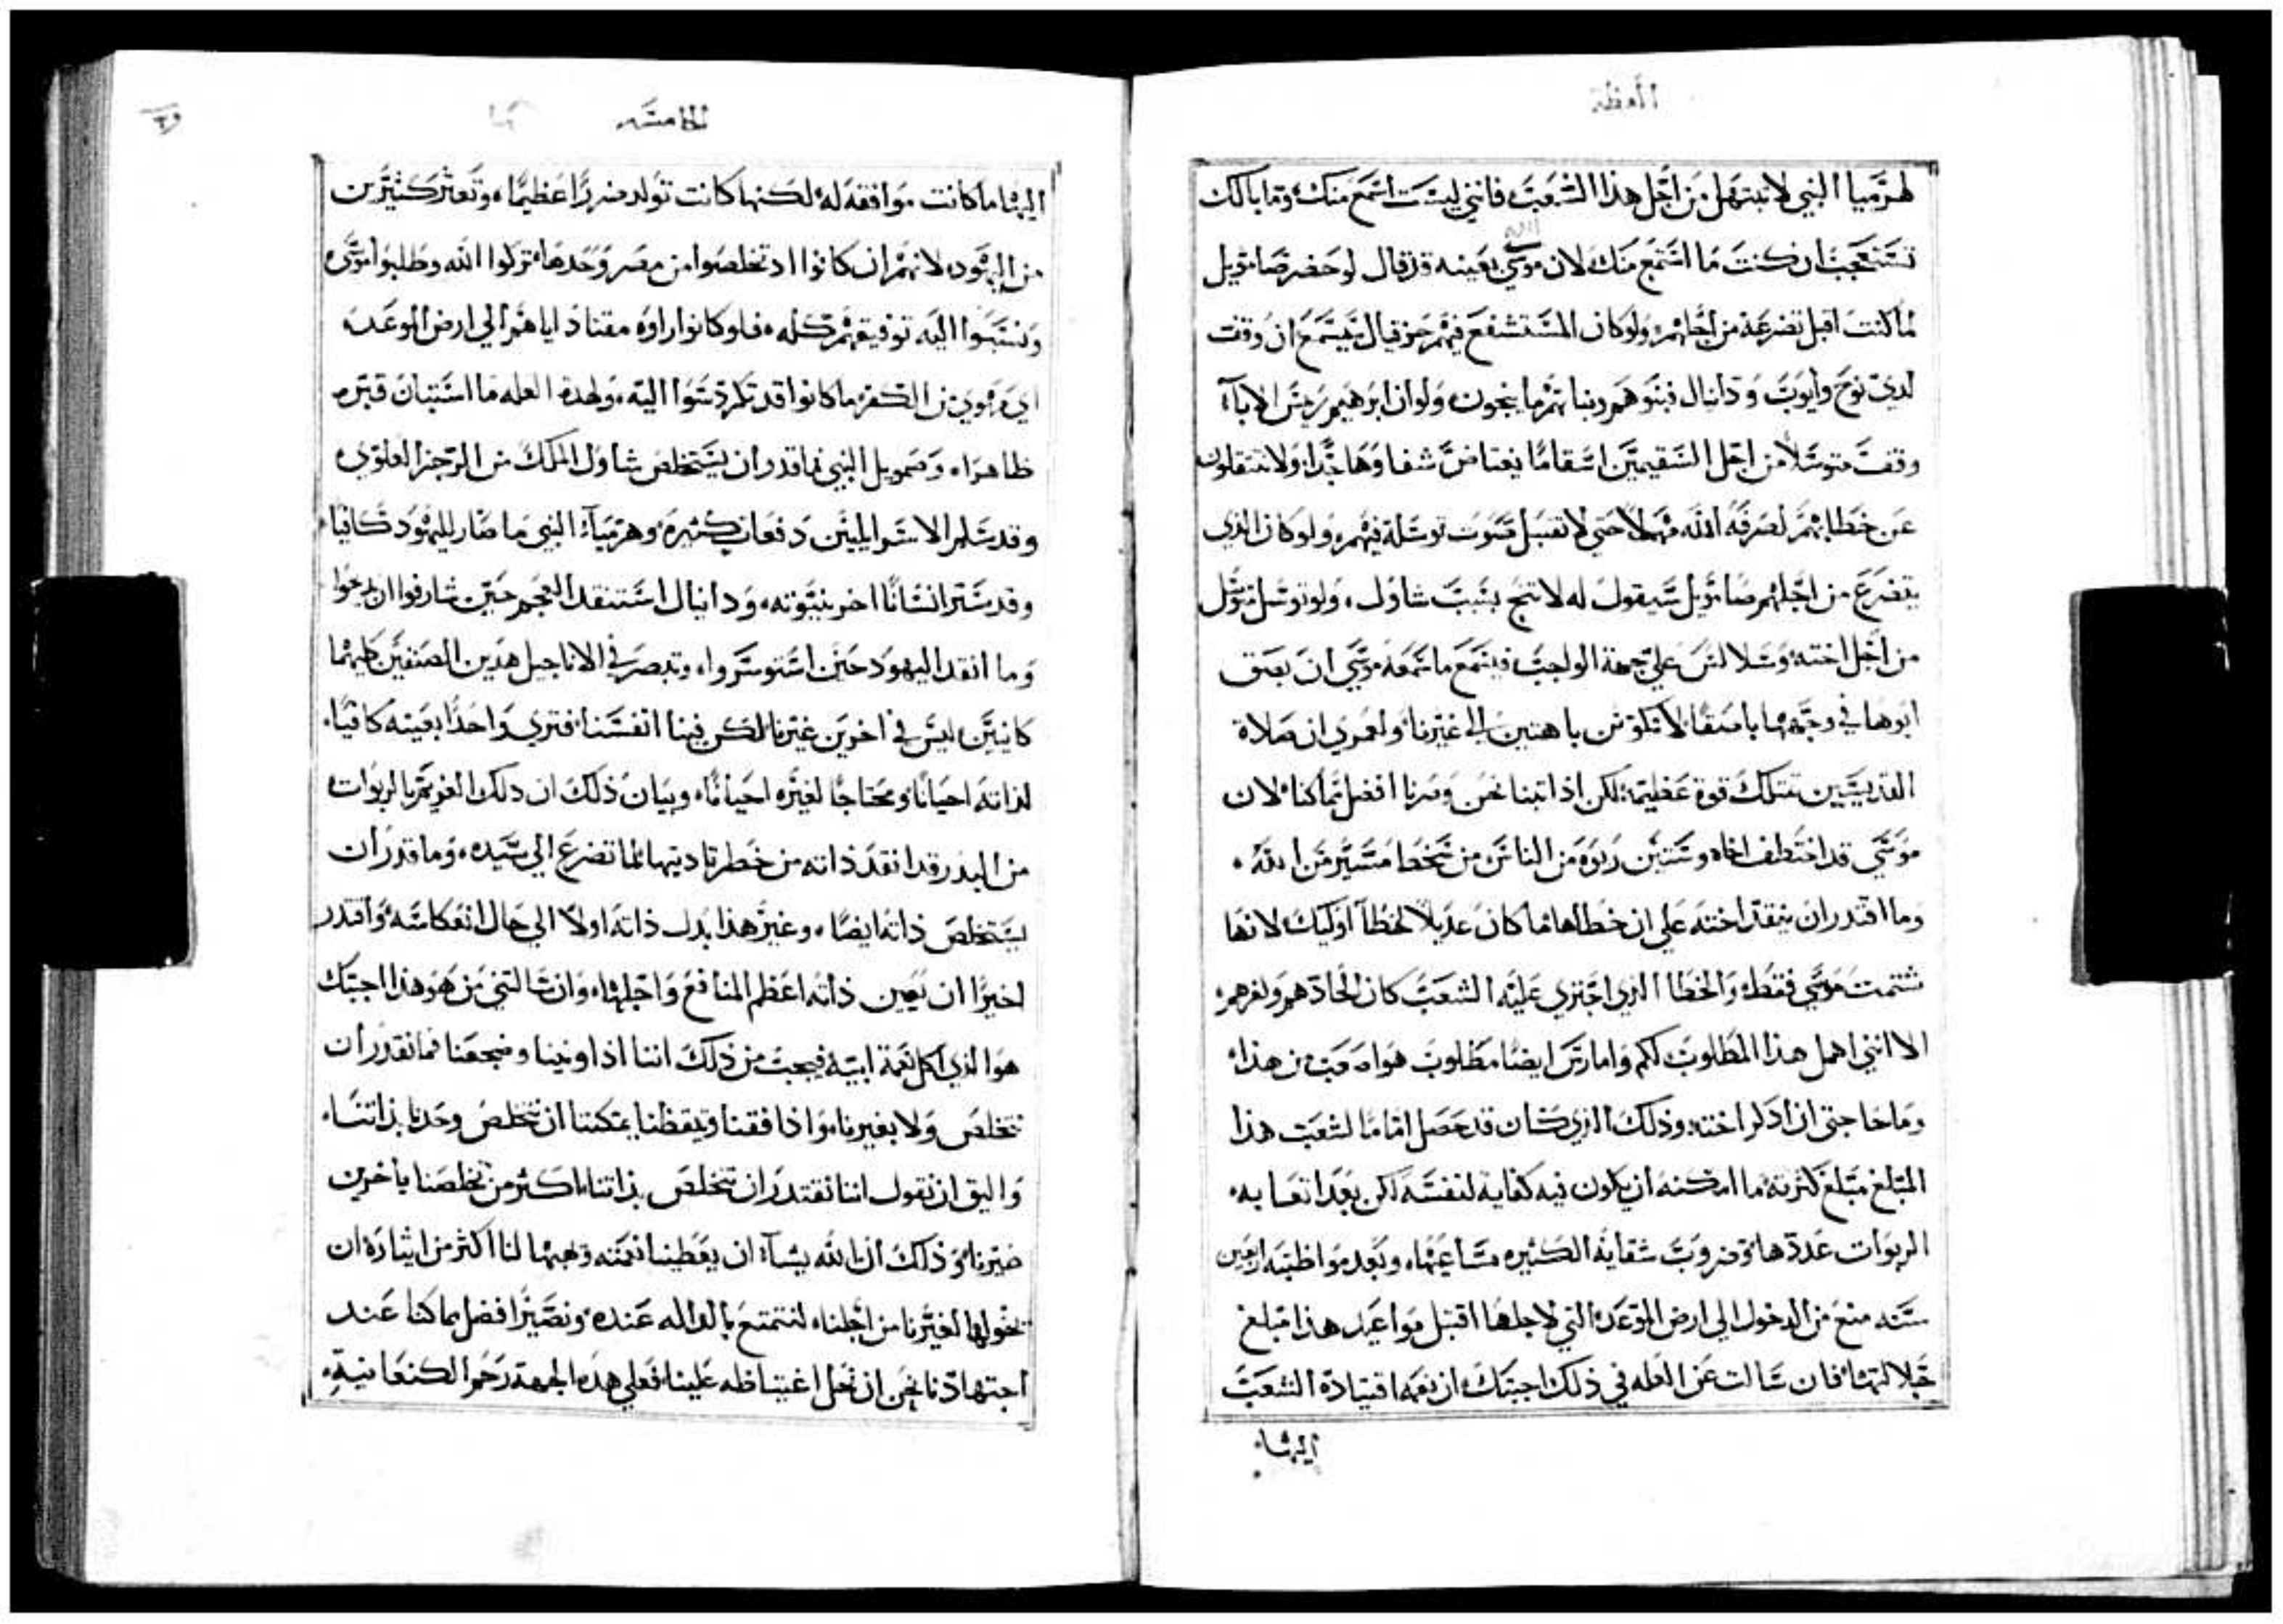 العظة
لهرميا النبي لا تبتهل من اجل هذا الشعب فانني ليست اسمع منك وما بالك
تستعجب ان كنت ما استمع منك لان موسي بعينه قد قال لو حضر صاموئيل
لما كنت اقبل تضرعه من اجلهم ولو كان المستشفع فيهم حزقيال فيسمع ان وقف
لدي نوح وايوب ودانيال فبنوهم وبناتهم ما ينجون ولو ان ابرهيم ريس الاباآ
وقف متوسلاً من اجل السقيمين اسقامًا يعتاض شفاوها جدًا ولا ينتقلون
عن خطايهم لصرفه الله مهملاً حتي لا تقبل صوت توسله فيهم ولو كان الذي
يتضرع من اجلهم صاموئيل سيقول له لا تنح بسبب شاول، ولو توسل متوسل
من اجل اخته وسلا ليس علي جهة الواجب فيسمع ما سمعه موسي ان بصق
ابوها في وجهها باصقا لا تكونن باهتين الي غيرنا ولعمري ان صلاة
القديسين تمتلك قوة عظيمة لكن اذا تبنا نحن وصرنا افضل مما كنا لان
موسي قد اختطف اخاه وستين ربوه من الناس من سخط مسير من الله.
وما اقتدر ان ينقذ اخته علي ان خطاها ما كان عديلاً لخطآ اوليك لانها
شتمت موسي فقط والخطا الذي اجتري عليه الشعب كان الحادهم ولغرهم
الا انني اهمل هذا المطلوب لكم وامارس ايضًا مطلوب هو اصعب من هذا
وما حاجتي ان اذكر اخته وذلك الذي كان قد حصل امامًا لشعب هذا
المبلغ مبلغ كثرته ما امكنه ان يكون فيه كفاية لنفسه لكن بعد اتعابه
الربوات عددها وضروب شقايه الكثيره مساعيها، وبعد مواظبته اربعين
سنه منع من الدخول الي ارض الموعد التي لاجلها اقتبل مواعيد هذا مبلغ
جلالتها فان سالت عن العله في ذلك اجبتك ان نعمه اقتيادة الشعب
اليها
الخامسه
اليها ما كانت موافقه له لكنها كانت تولد ضررًا عظيمًا، وتعثر كثيرين
من اليهود لانهم ان كانوا اذ تخلصوا من مصر وحدها تركوا الله وطلبوا موسي
ونسبوا اليه توفيقهم كله، فلو كانوا راوه مقتادًا اياهم الي ارض الوعد
من الكفر ما كانوا قد تكردسوا اليه، ولهذه العله ما استبان قبره
ظاهرا، وصمويل النبي فما قدر ان يستخلص شاول الملك من الرجز العلوي
وقد سلم الاسراييليين دفعات كثيره وهرميآ النبي ما صار لليهود كافيًا
وقد ستر انسانًا اخر بنبوته، ودانيال استنقذ العجم حين شارفوا ان يذبحوا
وما انقذ اليهود حين استوسروا، وتبصر في الاناجيل هذين الصنفين كليهما
كانين ليس في اخرين غيرنا لكن فينا انفسنا، فتري واحدًا بعينه كافيًا
لذاته احيانًا ومحتاجًا لغيره احيانًا، وبيان ذلك ان ذلك الغريم بالربوات
من البدر قد انقذ ذاته من خطر تاديتها لما تضرع الي سيده، وما قدر ان
يستخلص ذاته ايضًا، وغير هذا بذل ذاته اولاً الي حال انعكاسه واقتدر
اخيرًا ان يعين ذاته اعظم المنافع واجلها، وان سالتني من هو هذا اجبتك
هو الذي اكل نعمة ابيه فيجب من ذلك اننا اذا ونينا وضجعنا فما نقدر ان
نتخلص ولا بغيرنا، واذا افقنا وتيقظنا يمكننا ان نتخلص وحدنا بذاتنا،
واليق ان نقول اننا نقتدر ان نتخلص بذاتنا اكثر من تخلصنا باخرين
غيرنا وذلك ان الله يشآ ان يعطينا نعمته وبهبها لنا اكثر من ايثاره ان
نخولها لغيرنا من اجلنا، لنتمتع بالداله عنده ونصير افضل مما كنا عند
اجتهادنا نحن ان نحل اغتياظه علينا فعلي هذه الجهة رحم الكنعانية.